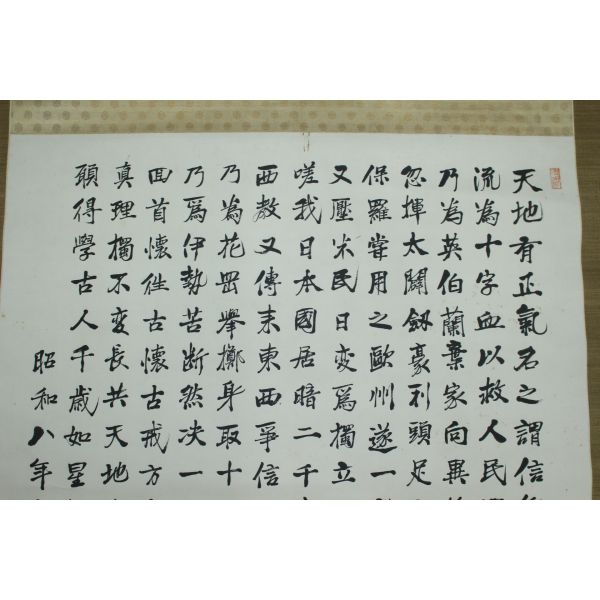 天地有正氣名之謂信
流為十字血以救人民
乃為英伯蘭棄家向異
忽揮太闢劔豪刹頭足
保羅嘗用之歐州遂一
又壓米民日變爲獨立
嗟我日本國居暗二千
西教又傳来東西爭信
乃為花畄擧擲身取十
乃爲伊勢苦断然决一
回首懐徃古懐古戒方
真理獨不変長共天地
頋得學古人千歳如星
昭和八年